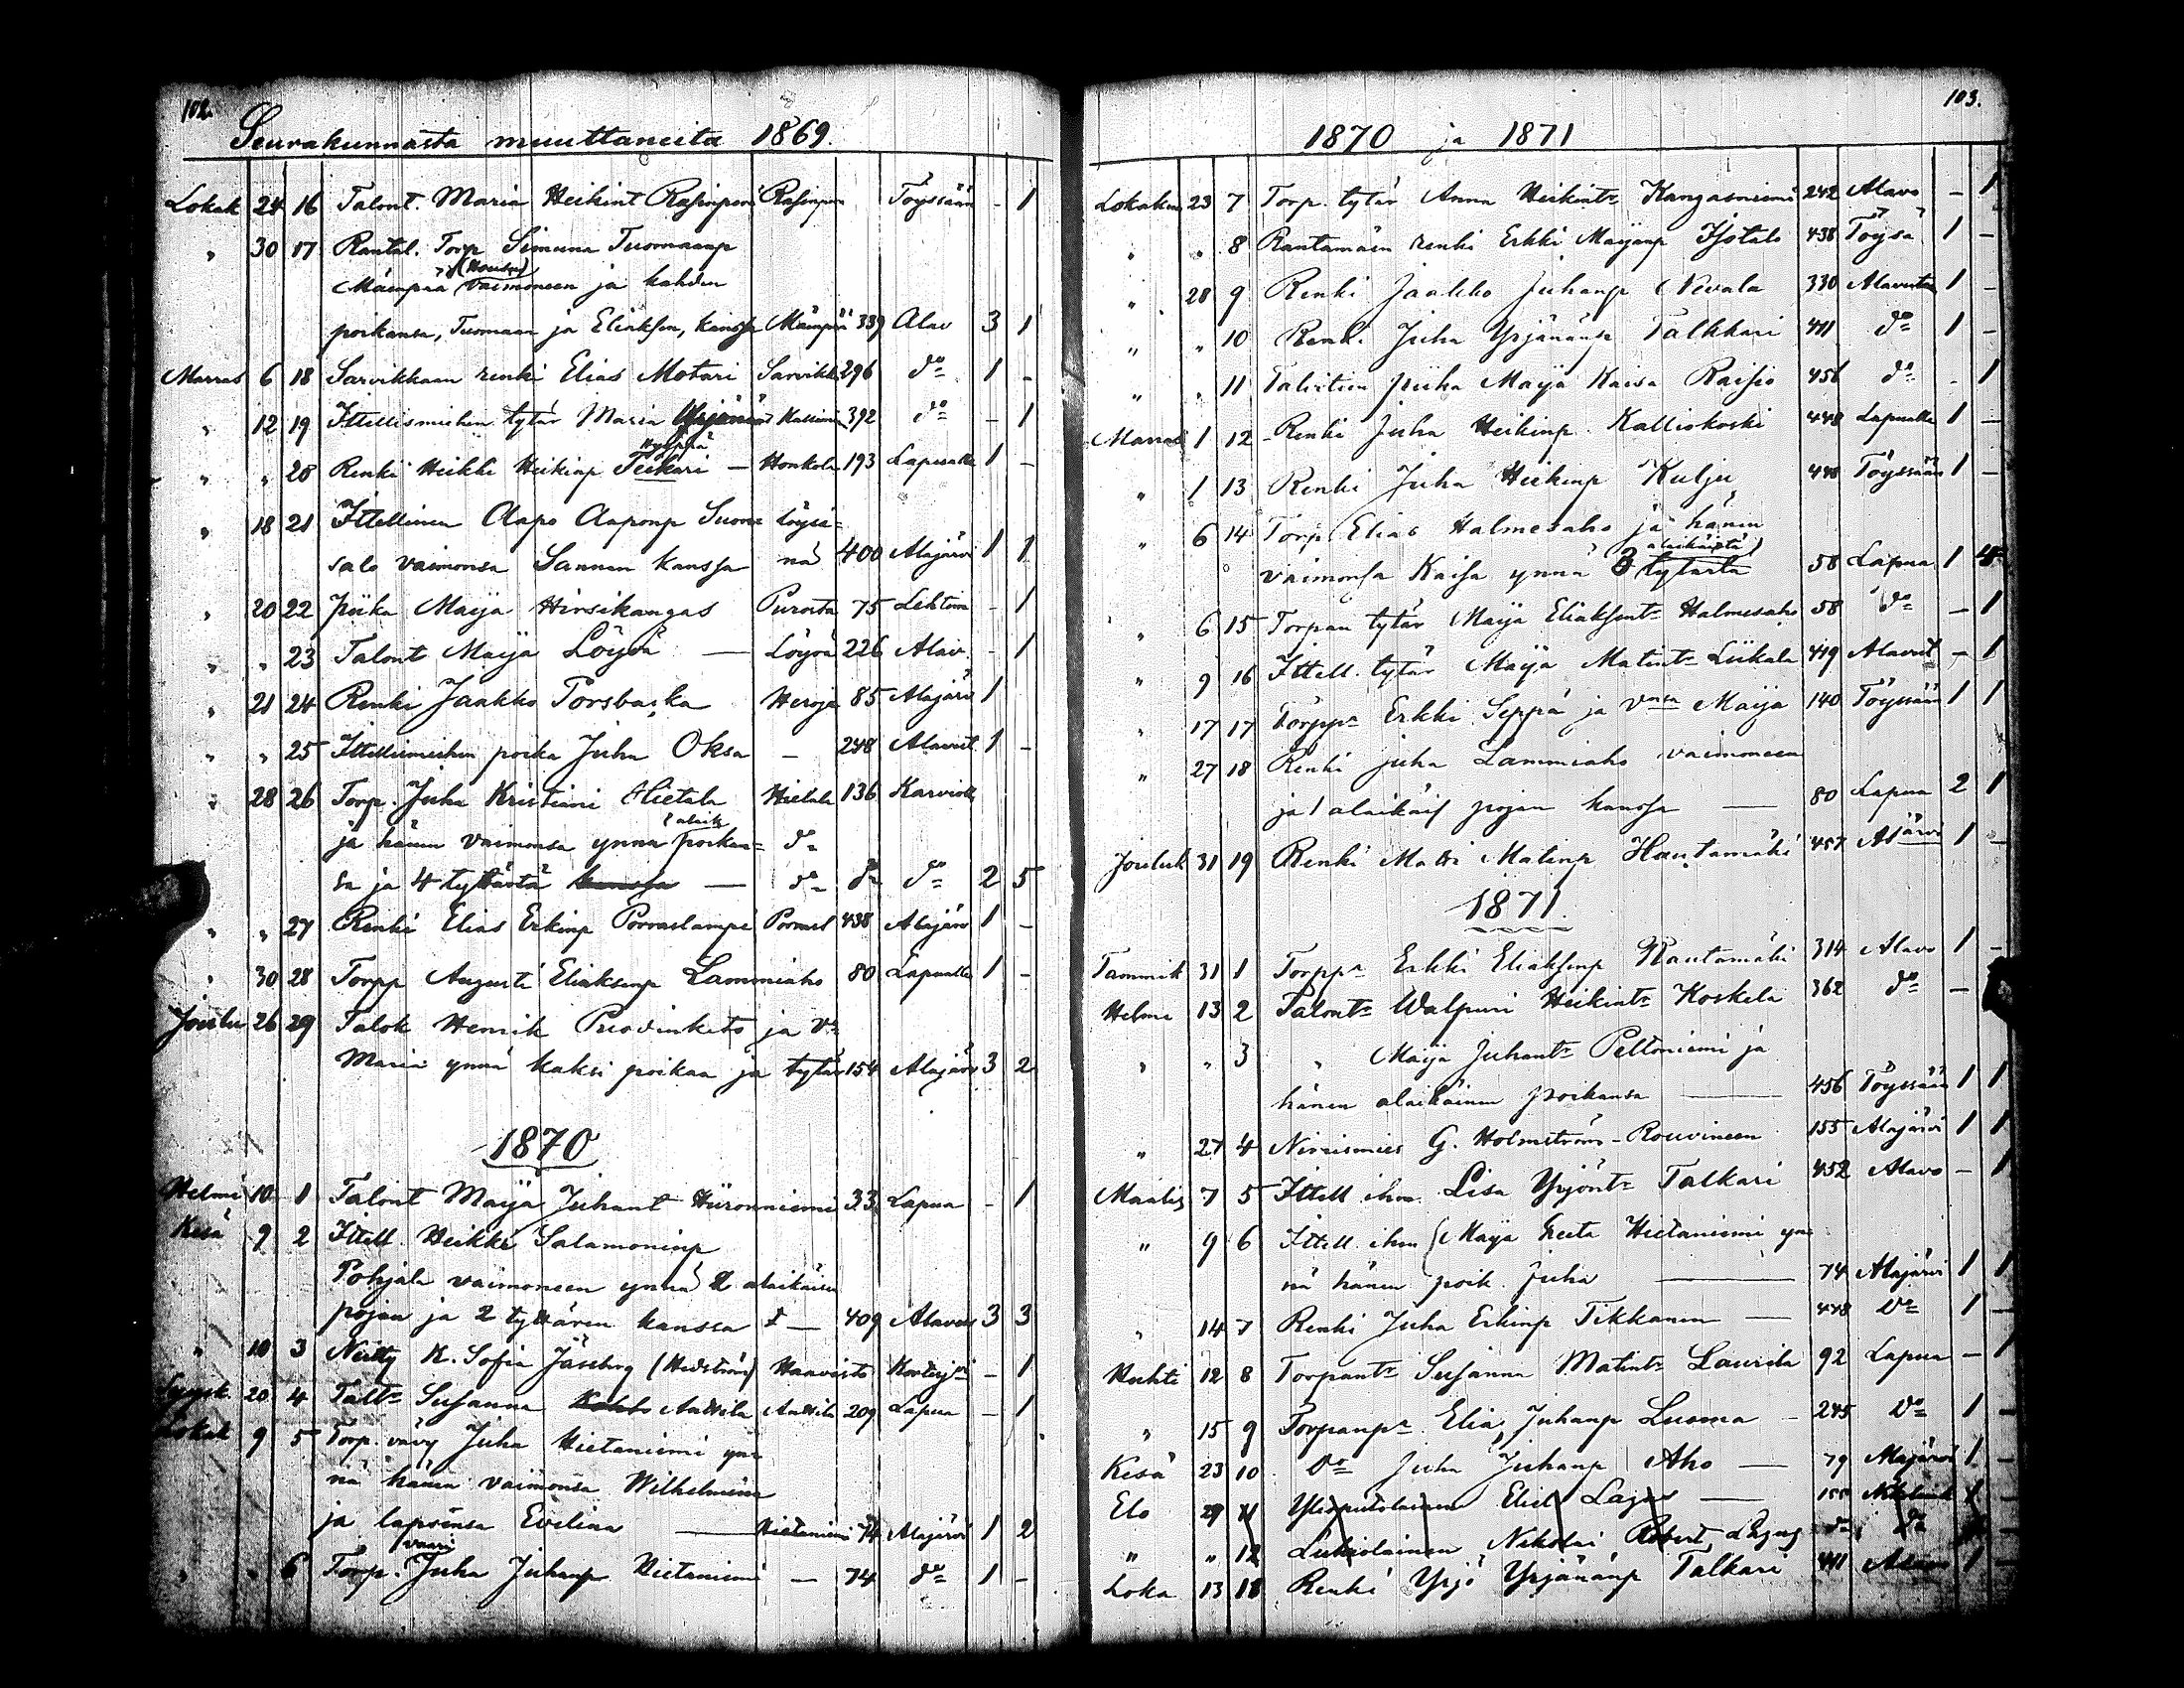 102.
Seurakunnasta muuttaneita 1869.
Lokak 24 16 Talont. Maria Heikint Rasinperä Töyssään - 1
" 30 17 Rantal. Torp Simuna Tuomaanp
Mäenpää vaimoneen ja kahden
poikansa, Tuomaan ja Eliaksen, kanssa Mäenpää 339 Alav 3 1
Marras 6 18 Sarvikkaan renki Elias Motari Sarvikk 296 do 1 -
" 12 19 Ittellismiehen tytär Maria 392 do - 1
" " 20 Renki Heikki Heikinp Teikari - Honkola 193 Lapualle 1 -
" 18 21 Ittellinen Aapo Aaponp Suon= Töysä=
salo vaimonsa Sannan kanssa nä 400 Alajärvi 1 1
" 20 22 Piika Maija Hirsikangas Purosta 75 Lehtim - 1
" " 23 Talont Maija Löyvä — Löyvä 226 Alav. - 1
" 21 24 Renki Jaakko Porsbacka Heroja 85 Alajärv 1
" " 25 Ittellismiehen poika Juha Oksa - 248 Alavut 1 -
" 28 26 Torp. Juha Kristiani Hietala Hietala 136 Karviolle
ja hänen vaimonsa ynnä (alaik poikan= do
sa ja 4 tytärtä kanssa — do do do 2 5
" " 27 Renki Elias Erkinp Porraslampi Porrasl 438 Alajärv 1 -
" 30 28 Torpp Augusti Eliaksenp Lammiaho 80 Lapualle 1 -
Joulu 26 29 Talok Henrik Puovinketo ja Vo
Maria ynnä kaksi poikaa ja tytär 154 Alajärv 3 2
1870
Helmi 10 1 Talont Maija Juhant Hiironniemi 33 Lapua - 1
Kesä 9 2 Ittell. Heikki Salamoninp
Pohjala vaimoneen ynnä 2 alaikäisen
pojan ja 2 tyttären kanssa — 409 Alavut 3 3
" 10 3 Neitty K. Sofia (Hedström) Haavisto - 1
Syysk 20 4 Talt= Susanna Anttila Anttila 209 Lapua - 1
Lokak 9 5 Torp. vävy Juha Hietaniemi yn=
nä hänen vaimonsa Wilhelmiina
ja lapsensa Evelina — Hietaniemi 74 Alajärvi 1 2
" " 6 Torp. vaari Juha Juhanp Hietaniemi — 74 do 1 -
103.
1870 ja 1871
Lokakuu 23 7 Torp. tytär Anna Heikint= Kangasniemi 242 Alavo - 1
" " 8 Rantamäen renki Erkki Maijanp Isotalo 438 Töysä 1 -
" 28 9 Renki Jaakko Juhanp Nevala 330 Alavuten 1 -
" " 10 Renki Juha Yrjänänp Talkkari 411 do 1 -
" " 11 Talvitien piika Maija Kaisa Raisio 456 do - 1
Marras 1 12 Renki Juha Heikinp. Kalliokoski 448 Lapualle 1 -
" 1 13 Renki Juha Heikinp Kulju 448 Töyssään 1 -
" 6 14 Torp Elias Halmesaho ja hänen
vaimonsa Kaisa ynnä 3 alaikäistä tytärtä 58 Lapua 1 4
" 6 15 Torpan tytär Maija Eliaksent= Halmesaho 58 do - 1
" 9 16 Ittell. tytär Maija Matint= Liikala 419 Alavut - 1
" 17 17 Torpp= Erkki Seppä ja Vmsa Maija 140 Töyssään 1 1
" 27 18 Renki Juha Lammiaho vaimoneen
ja 1 alaikäis pojan kanssa — 80 Lapua 2 1
Jouluk 31 19 Renki Matti Matinp Hautamäki 457 Al järvi 1 -
1871.
Tammik 31 1 Torpp= Erkki Eliaksenp Rautamäki 314 Alavo 1 -
Helmi 13 2 Talont= Walpuri Heikint= Koskela 362 do -
" " 3 " Maija Juhant= Peltoniemi ja
hänen alaikäinen poikansa — 456 Töyssään 1 1
" 27 4 Nimismies G. Holmström - Rouvineen 155 Alajärvi 1 1
Maalis 7 5 Ittell. ihm. Lisa Yrjönt= Talkari 452 Alavo - 1
" 9 6 Ittell. ihm Maija Greta Hietaniemi yn=
nä hänen poik. Juha — 74 Alajärvi 1 1
" 14 7 Renki Juha Erkinp Tikkanen — 448 do 1 -
Huhti 12 8 Torpant= Susanna Matint= Laurila 92 Lapua - 1
" 15 9 Torpanp= Elias Juhanp Luoma - 245 do 1 -
Kesä 23 10 do Juha Juhanp Aho — 79 Alajärvi 1 -
Elo 29 11 Yliopistolainen Elis Lagus — 155
" " 12 Lukiolainen Nikolai Robert Lagus do do
Loka 13 13 Renki Yrjö Yrjänänp Talkari 411 Alavo 1 -